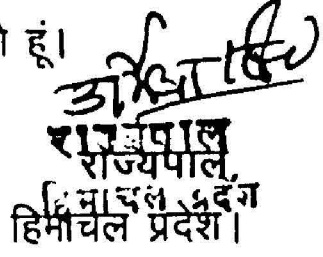 हूं।
राज्यपाल
राज्यपाल,
हिमाचल प्रदेश
हिमाचल प्रदेश।